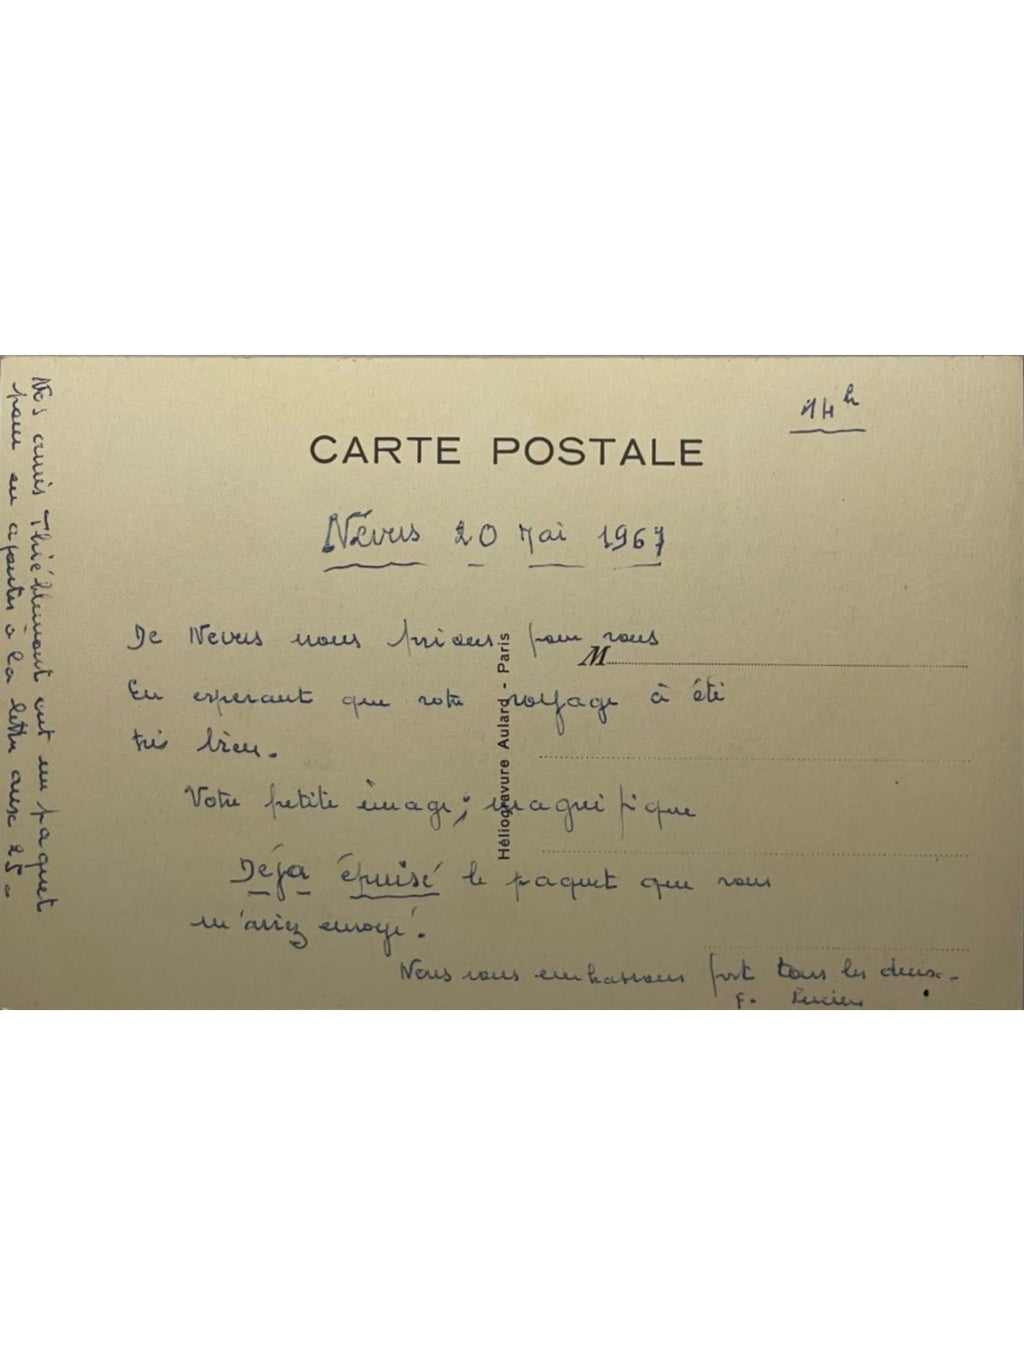 14h
CARTE POSTALE
Névers 20 Mai 1967
De Nevers nous prions pour vous
En esperant que votre voyage à été
très bien.
Votre petite image; magnifique
Déja épuisé le paquet que vous
m'aviez envoyé.
Nous vous embrassons fort tous les deux.
F. Lucien
M
Héliogravure Aulard - Paris
Nos amis Thiéblemont ont un paquet
pour en ajouter à la lettre aux